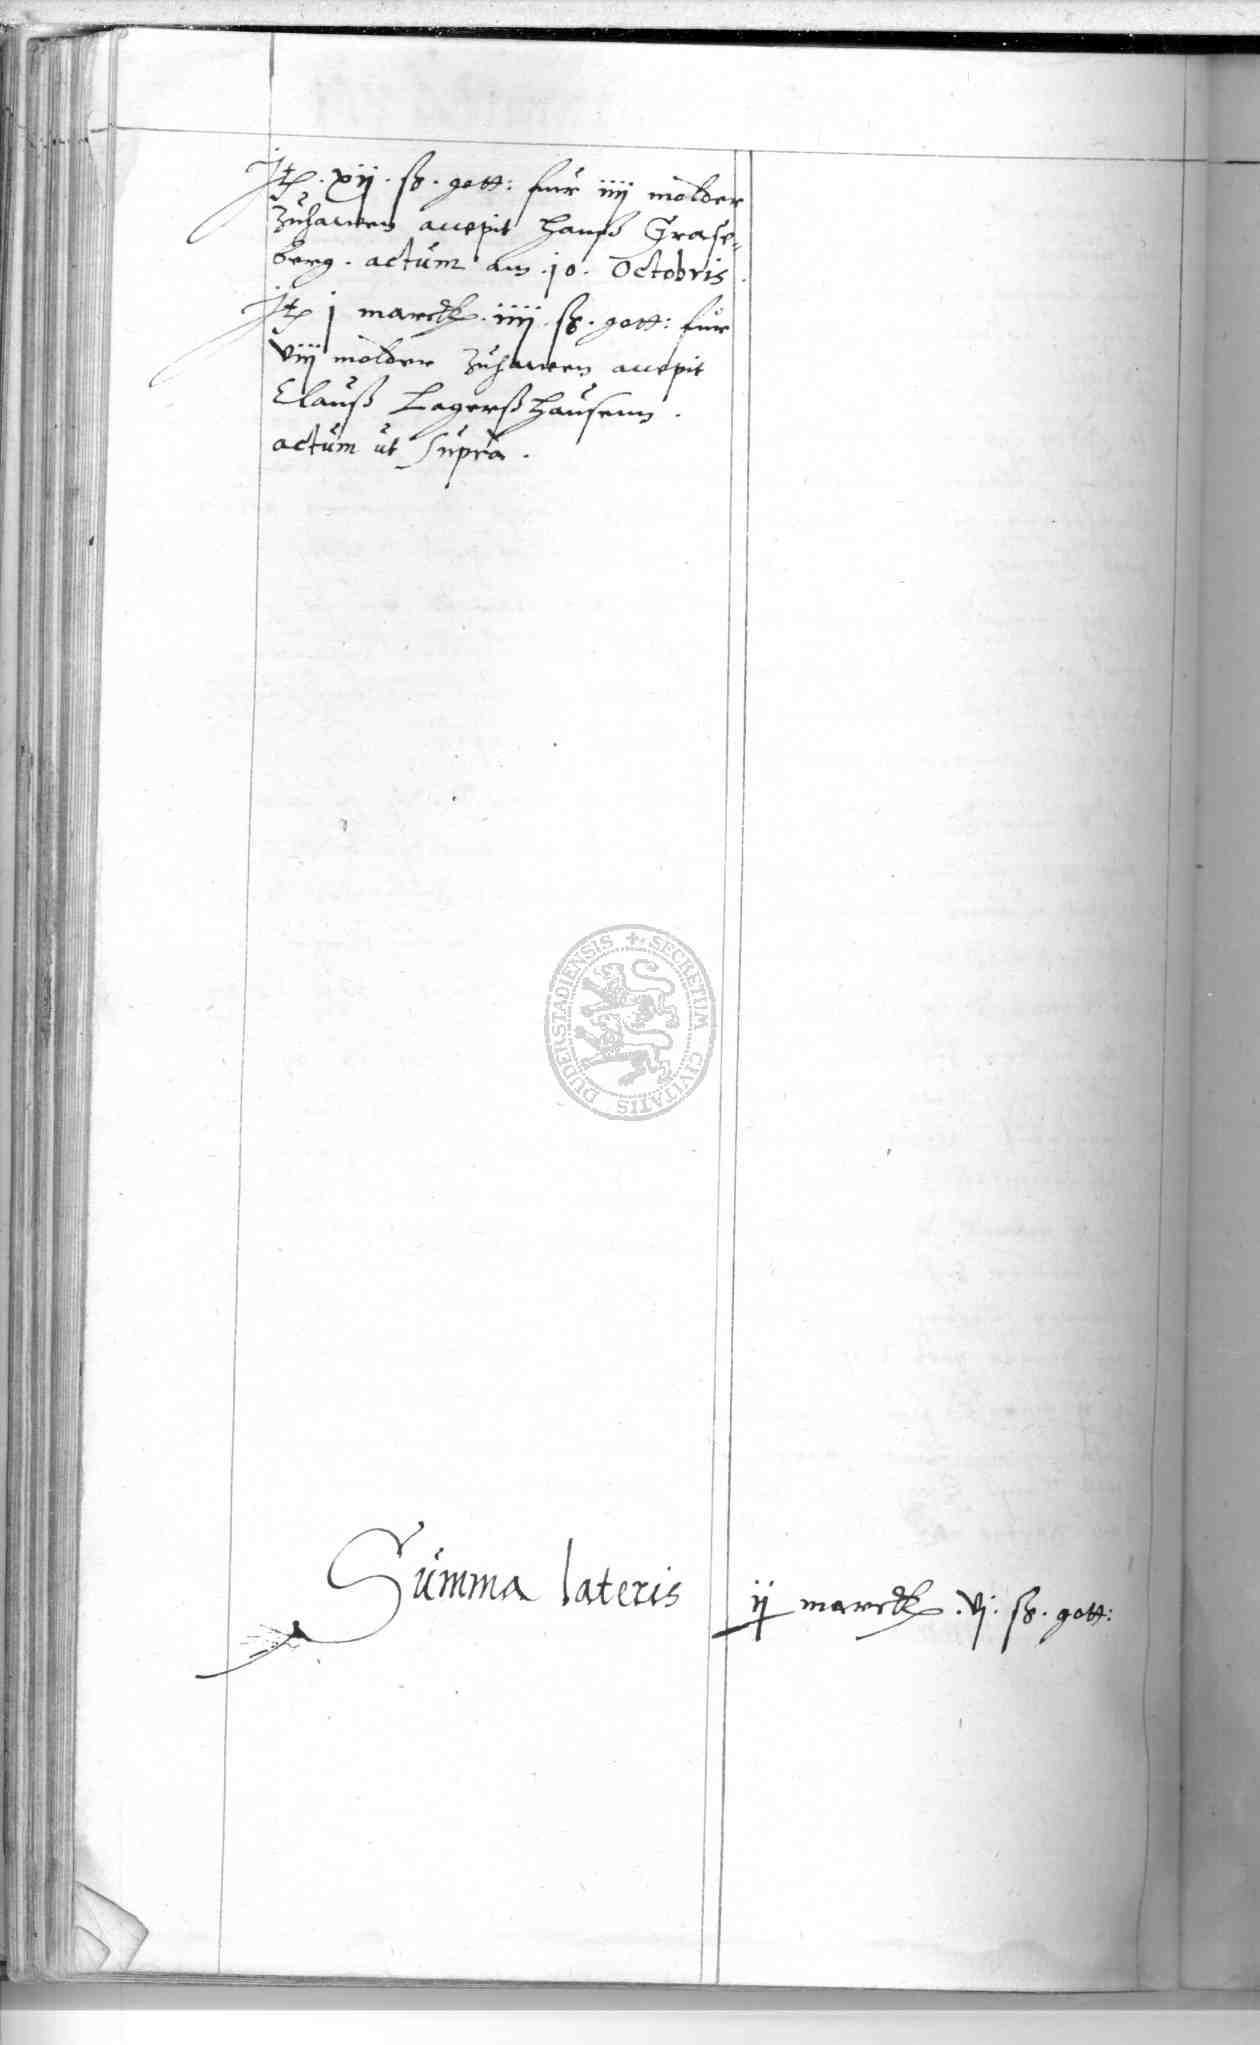 Jt. xij. ß. gott: fur iiij molder
zuhawen accepit Hanß Grase=
berg. actum am .10. Octobris.
Jt j marck. iiij. ß. gott: fur
viij molder zuhawen accepit
Clauß Lagerßhausenn.
actum ut supra.
DUDERSTADIENSIS + SECRETUM CIVITATIS
Summa lateris ij marck. vj. ß. gott: